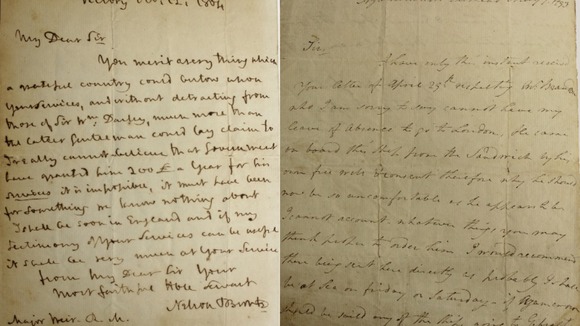 Victory Oct 12, 1804
My Dear Sir
You merit every thing which
a grateful country could bestow upon
your services, and without detracting from
those of Sir Wm
much more than
the latter Gentleman could lay claim to
I really cannot believe that Government
have granted him 200 £ a Year for his
services it is impossible, it must have been
for something we know nothing about
I shall be soon in England and if my
testimony of your services can be useful
it shall be very much at your service
from My Dear Sir Your
most faithful Hble Servant
Nelson & Bronte
Major Weir
Sir,
I have only this instant received
Your letter of April 29th respecting Mr
who I am sorry to say cannot have my
leave of Absence to go to London. He came
on board this Ship from the Sandwich by his
own free will & consent therefore why he should
now be so uncomfortable as he appears to be
I cannot account. whatever things you may
think proper to order him I would recommend
there being sent here directly as probably I shall
be at Sea on friday or Saturday